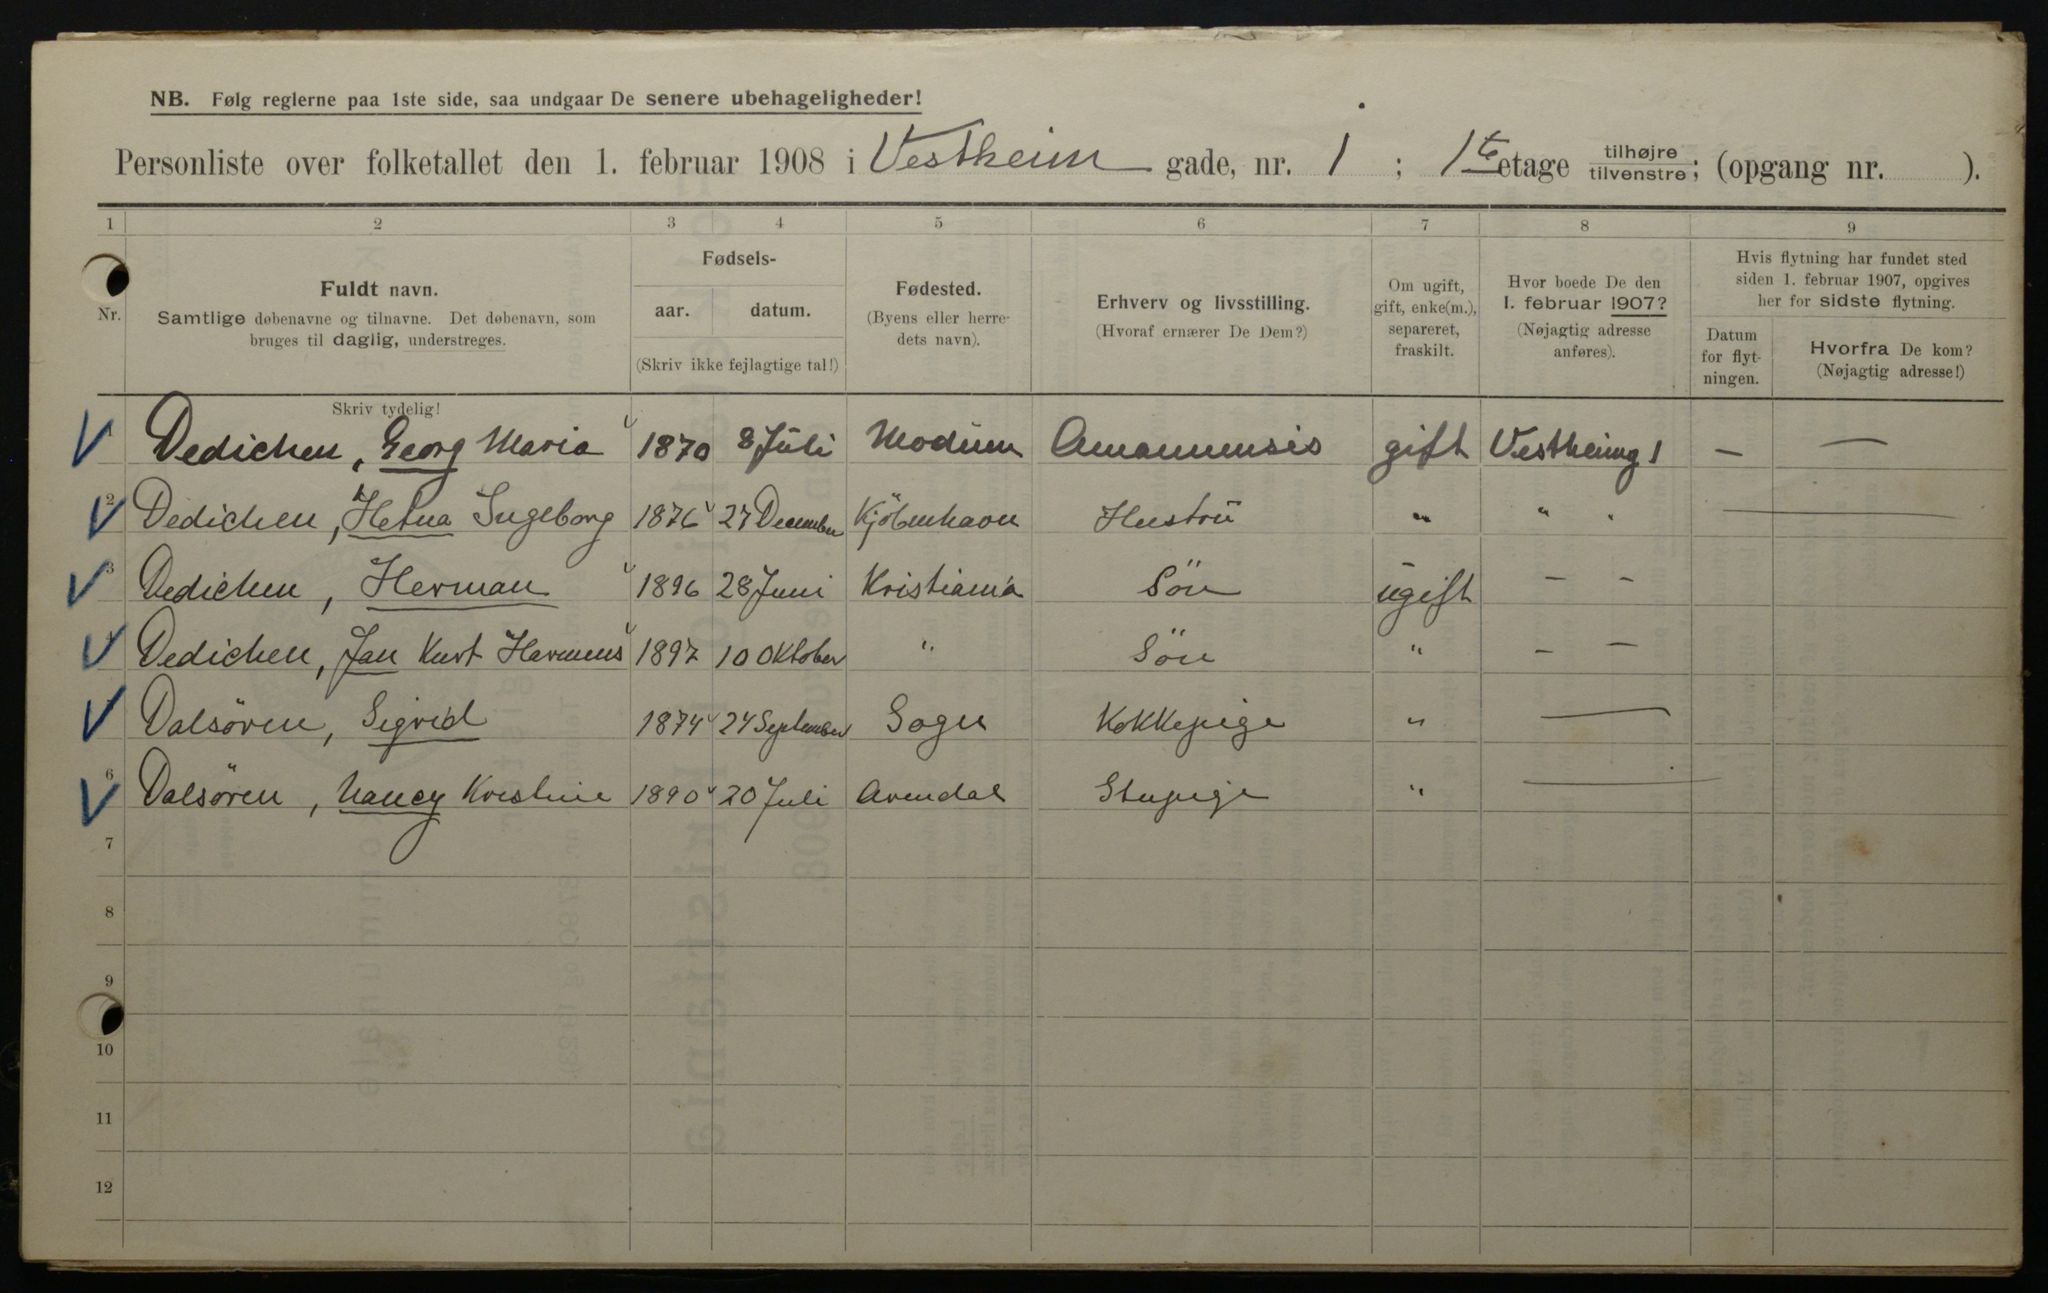 NB. Følg reglerne paa 1ste side, saa undgaar De senere ubehageligheder!
Personliste over folketallet den 1. februar 1908 i Vestheim gade, nr. 1 ; 1ste etage tilhøjre tilvenstre; (opgang nr. ).
1 2 3 4 5 6 7 8 9
Nr.
Fuldt navn.
Samtlige døbenavne og tilnavne. Det døbenavn, som
bruges til daglig, understreges.
Skriv tydelig!
Fødsels-
aar. datum.
(Skriv ikke fejlagtige tal!)
Fødested.
(Byens eller herre-
dets navn).
Erhverv og livsstilling.
(Hvoraf ernærer De Dem?)
Om ugift,
gift, enke(m.),
separeret,
fraskilt.
Hvor boede De den
1. februar 1907?
(Nøjagtig adresse
anføres).
Hvis flytning har fundet sted
siden 1. februar 1907, opgives
her for sidste flytning.
Datum
for flyt-
ningen.
Hvorfra De kom?
(Nøjagtig adresse!)
1 Dedichen, Georg Maria 1870 8 Juli Modum Amanuensis gift Vestheimg 1 — —
2 Dedichen, Ingeborg 1876 27 December Kjöbenhavn Hustru " " "
3 Dedichen, Herman 1896 28 Juni Kristiania Sön ugift — —
4 Dedichen, Jan Kurt 1897 10 Oktober " Sön " — —
5 Dalsören, Sigrid 1874 24 September Sogn Kokkepige " —
6 Dalsören, Nancy Kristine 1890 20 Juli Arendal Stupige " —
7
8
9
10
11
12